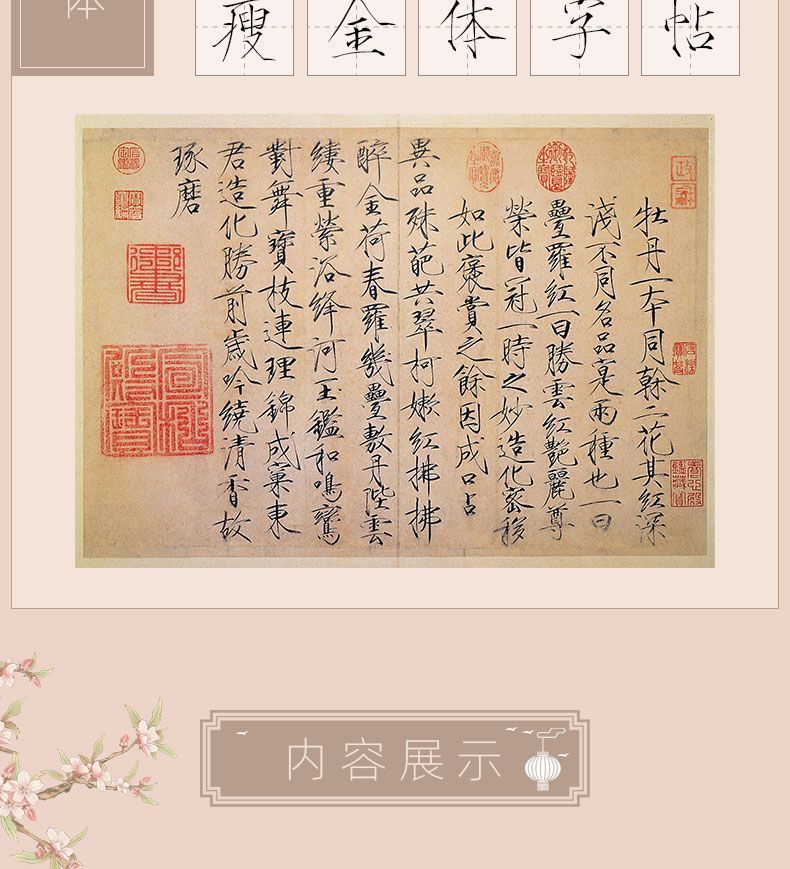 体
瘦金体字帖
牡丹一本同榦二花其紅深
淺不同名品寔兩種也一曰
疊羅紅一曰勝雲紅艷麗尊
榮皆冠一時之妙造化密移
如此褒賞之餘因成口占
異品殊葩共翠柯嫩紅拂拂
醉金荷春羅幾疊敷丹陛雲
縷重縈浴絳河玉鑑和鳴鸞
對舞寶枝連理錦成窠東
君造化勝前歲吟繞清香故
琢磨
内容展示